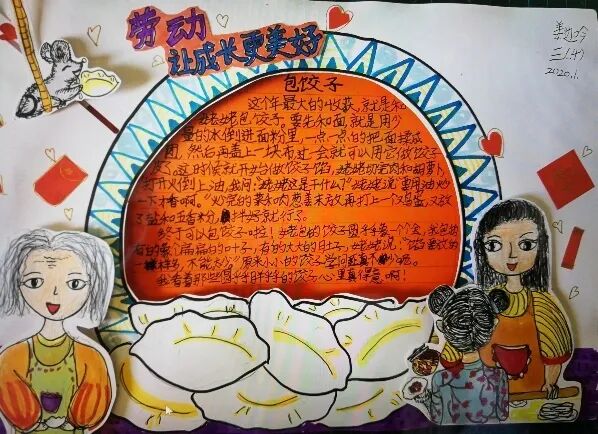 劳动
让成长更美好
包饺子
这个年最大的收获，就是和
姥姥包饺子。要先和面，就是用少
量的水倒进面粉里，一点一点的把面揉成
团，然后再盖上一块布，过一会就可以用它做饺子
皮。这时候就开始做饺子馅，姥姥切完肉和胡萝卜，
打开火倒上油，我问："姥姥这是干什么？"姥姥说："要用油炒
一下才香啊。"炒完的菜和肉葱姜末放再打上一个鸡蛋，又放
了盐和五香粉，拌好就行了。
终于可以包饺子啦！姥姥包的饺子圆乎乎像一个金，我包的
有的像个扁扁的叶子，有的大大的肚子，姥姥说："馅要放的
一样多，不能太少。"原来小小的饺子学问还真不少呢。
我看着那些胖乎乎的饺子心里真得意啊！
2020.1.